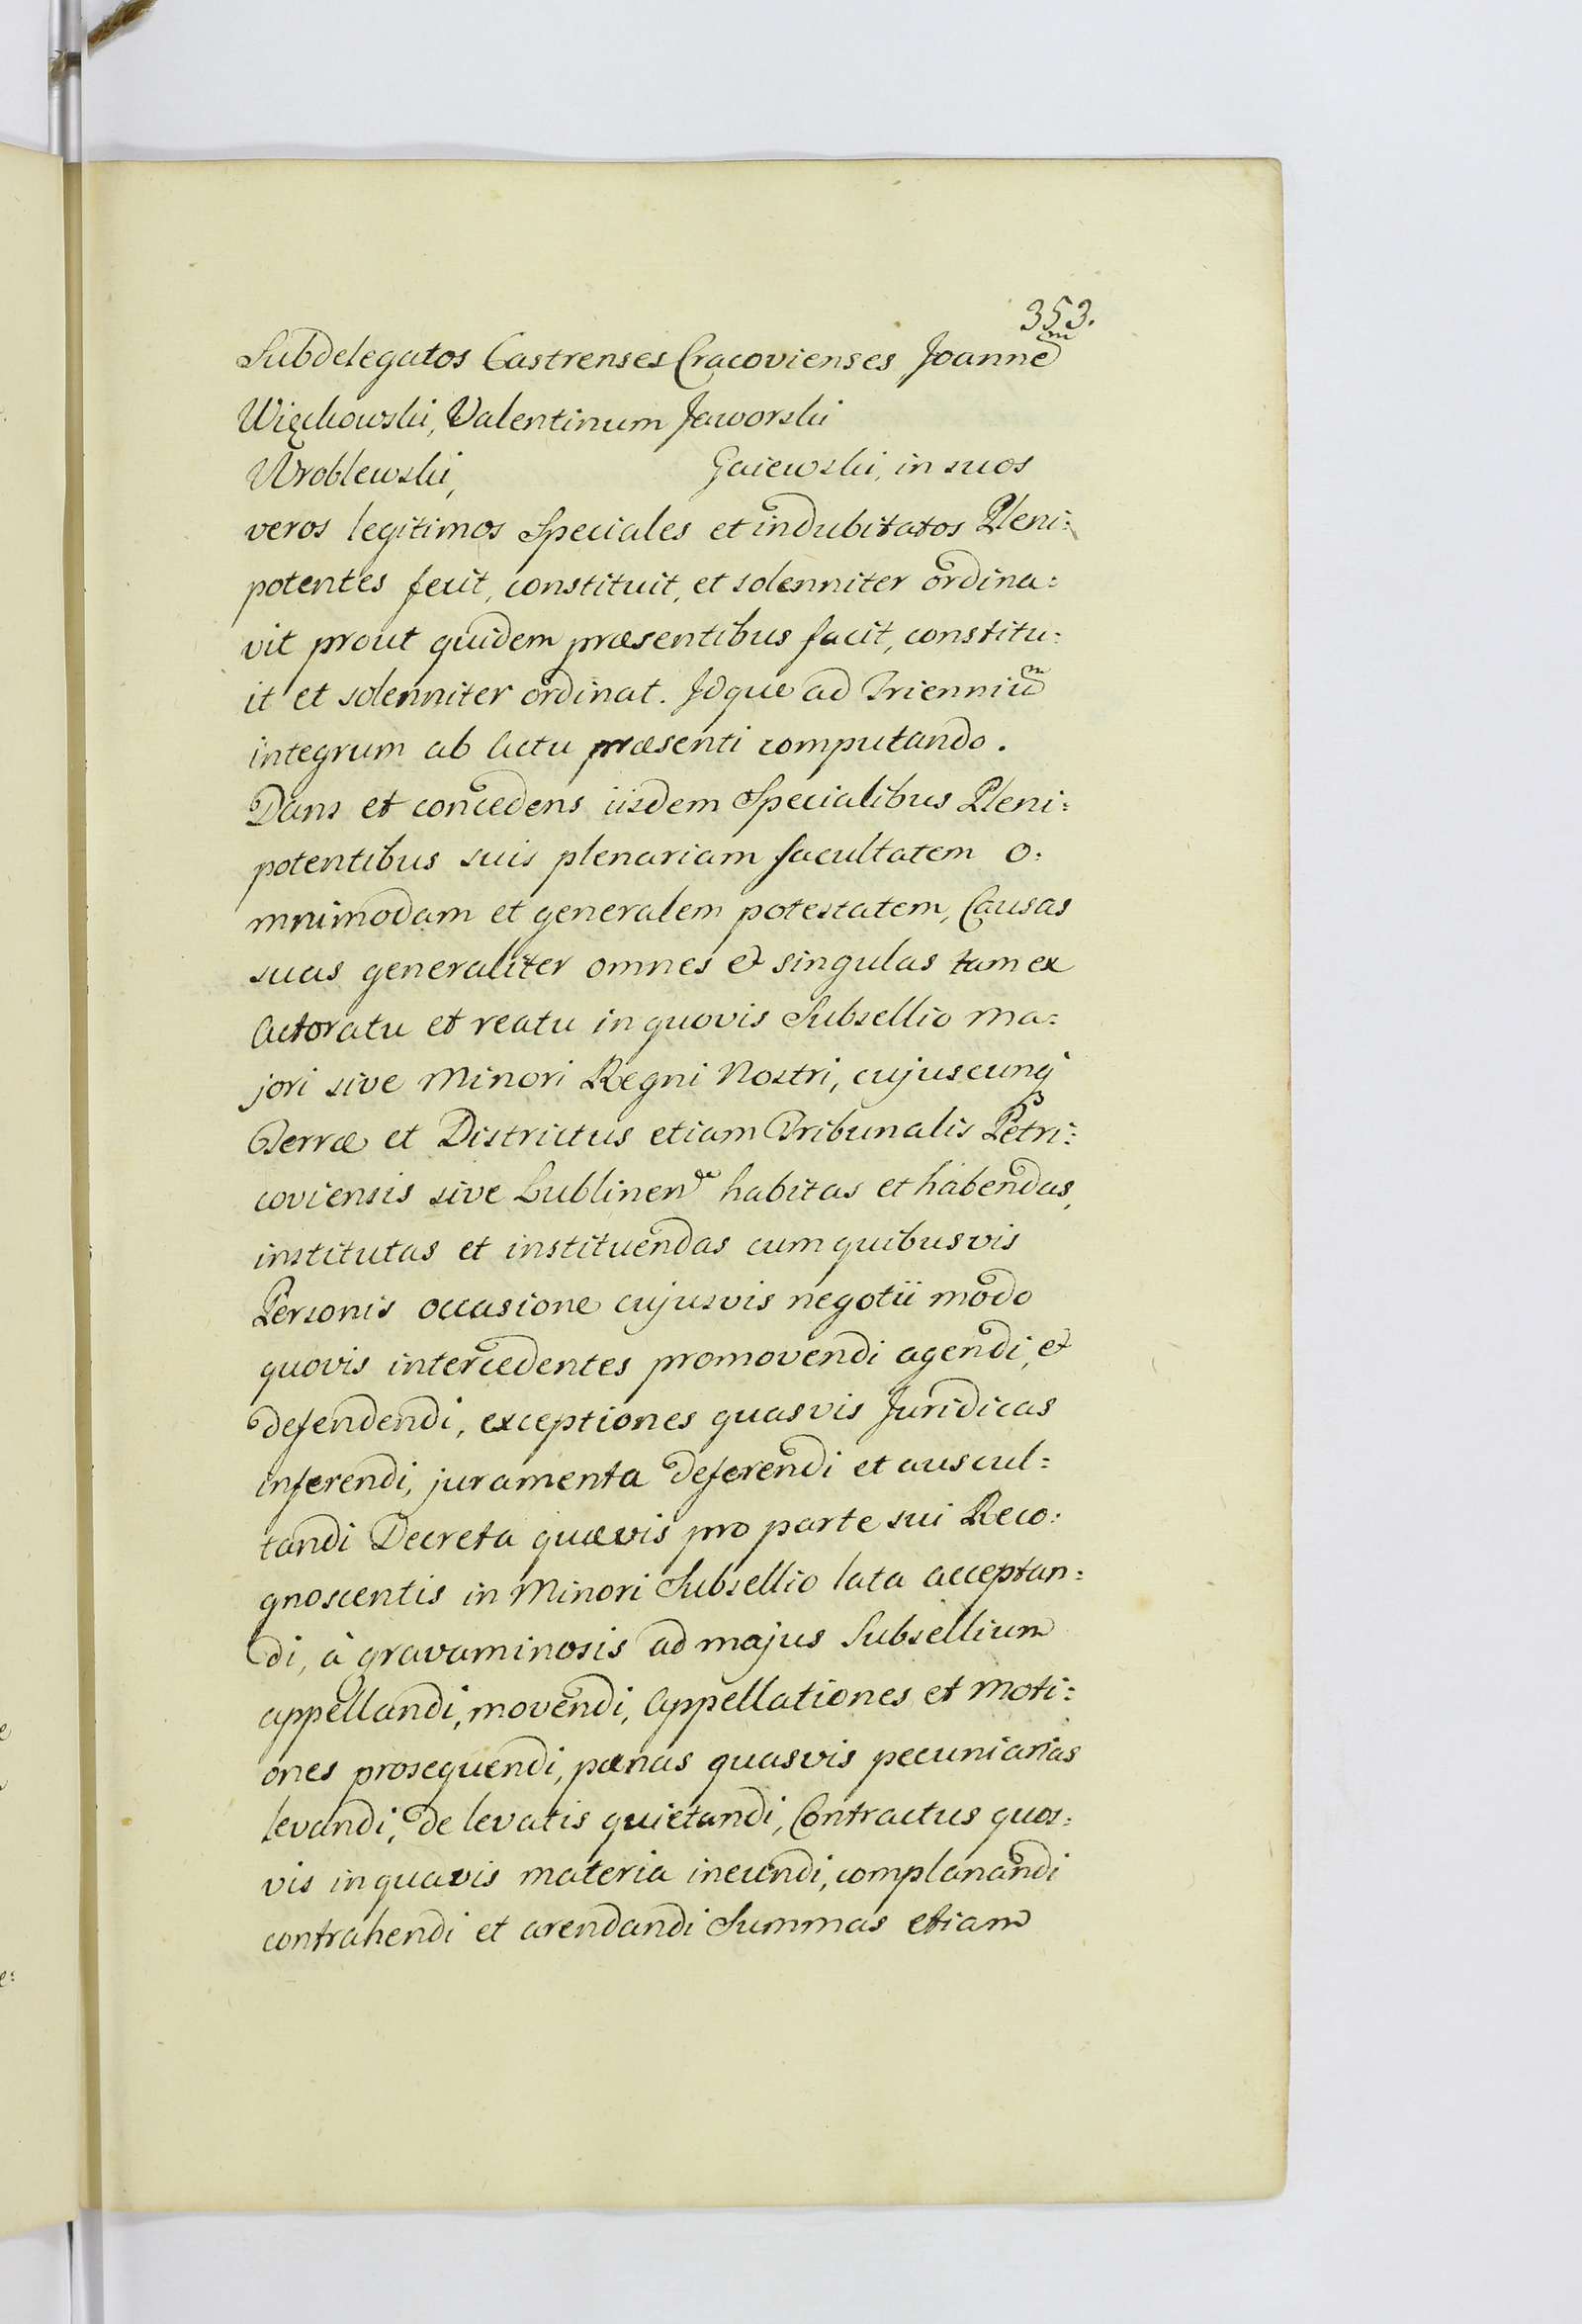 353.
Subdelegatos Castrenses Cracovienses Joannem
Więckowski, Valentinum Jaworski
Wroblewski, Gaiewski, in suos
veros legitimos Speciales et indubitatos Pleni:
potentes fecit, constituit, et solenniter ordina:
vit prout quidem præsentibus facit, constitu:
it et solenniter ordinat. Idque ad Trienniūm
integrum ab Actu præsenti computando.
Dans et concedens iisdem Specialibus Pleni:
potentibus suis plenariam facultatem o:
mnimodam et generalem potestatem, Causas
suas generaliter omnes et singulas tam ex
Actoratu et reatu in quovis Subsellio ma:
jori sive Minori Regni Nostri, cujuscunq
Terræ et Districtus etiam Tribunalis Petri:
coviensis sive Lublinen habitas et habendas,
institutas et instituendas cum quibusvis
Personis occasione cujusvis negotii modo
quovis intercedentes promovendi agendi, et
defendendi, exceptiones quasvis Juridicas
inferendi, juramenta deferendi et auscul:
tandi Decreta quævis pro parte sui Reco:
gnoscentis in Minori Subsellio lata acceptan:
di, à gravaminosis ad majus Subsellium
appellandi, movendi, Appellationes et Moti:
ones prosequendi, pænas quasvis pecuniarias
levandi, de levatis quietandi, Contractus quos:
vis in quavis materia ineundi, complanandi
contrahendi et arendandi Summas etiam